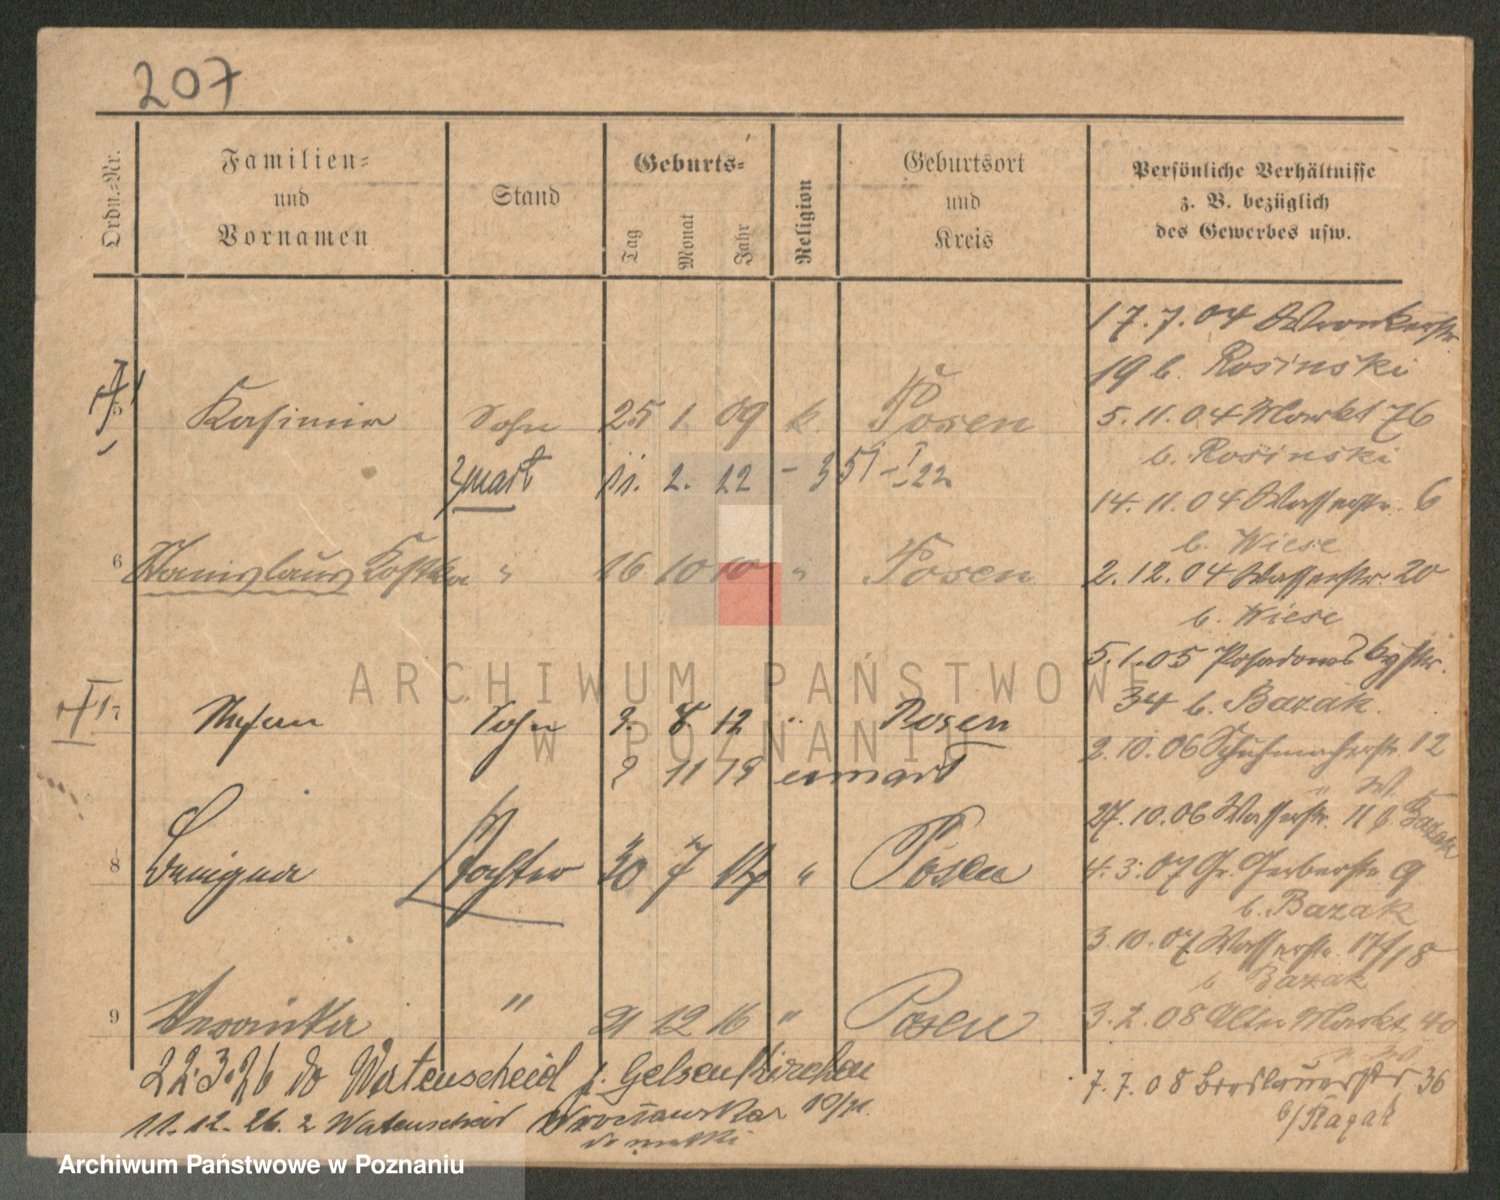 207
Ordn.-Nr.
Familien-
und
Vornamen
Stand
Geburts-
Tag
Monat
Jahr
Religion
Geburtsort
und
Kreis
Persönliche Verhältnisse
z. B. bezüglich
des Gewerbes usw.
17.7.04 Wronkerstr.
19 b. Rosinski
5 Kasimir Sohn 25 1. 09 k. Posen
5.11.04 Markt 76
b. Rosinski
zmarł 11. 2. 22 - 351 - I 22
14.11.04 Wasserstr. 6
b. Wiese
6 Stanislaus Kostka " 16 10 10 " Posen
2.12.04 Wasserstr. 20
b. Wiese
5.1.05 str.
34 b. Bazak
7 Stefan Sohn 3. 8 12 " Posen
2.10.06 Schuhmacherstr. 12
2 11 19 umarł
27.10.06 Wasserstr. 11 b. Bazak
8 Benigna Tochter 30 7 14 " Posen
4.3.07 Gr. Gerberstr. 9
b. Bazak
3.10.07 Wasserstr. 17/18
b. Bazak
9 Veronika " 21 12 16 " Posen
3.2.08 Alter Markt 40
22.3.26 do Watenscheid p. Gelsenkirchen
7.7.08 Breslauerstr 36
b/
11.12.26. z Watenscheid 10/11.
do matki
ARCHIWUM PAŃSTWOWE
W POZNANIU
Archiwum Państwowe w Poznaniu